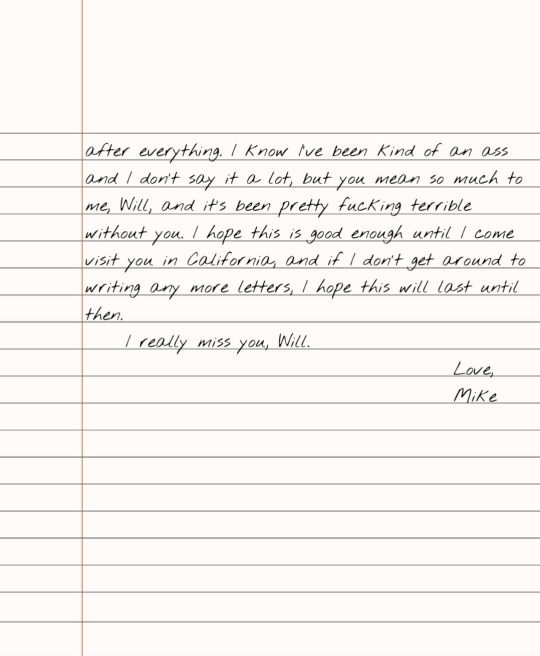 after everything. I know I've been kind of an ass
and I don't say it a lot, but you mean so much to
me, Will, and it's been pretty fucking terrible
without you. I hope this is good enough until I come
visit you in California, and if I don't get around to
writing any more letters, I hope this will last until
then.
I really miss you, Will.
Love,
Mike